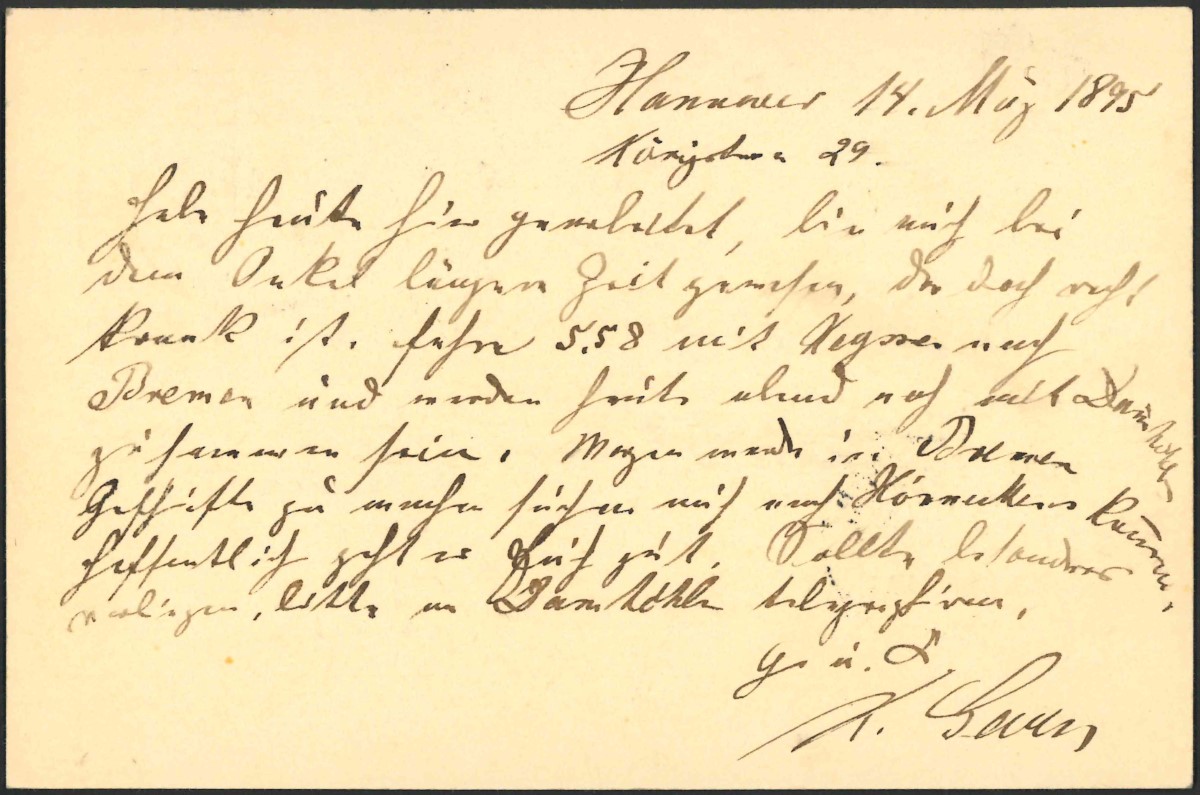 Hannover 14. März 1895
Königstrasse 29.
Habe heute hier gearbeitet, bin auch bei
dem Onkel längere Zeit gewesen, der doch recht
krank ist. fahre 5.58 mit nach
Bremen und werden heute abend noch mit Damköhler
zusammen sein. Morgen werde in Bremen
Geschäfte zu machen suchen auch nach kommen.
hoffentlich geht es Euch gut. Sollte besonderes
vorliegen, bitte an Damköhler telegraphiren,
Gr. u. K.
H.